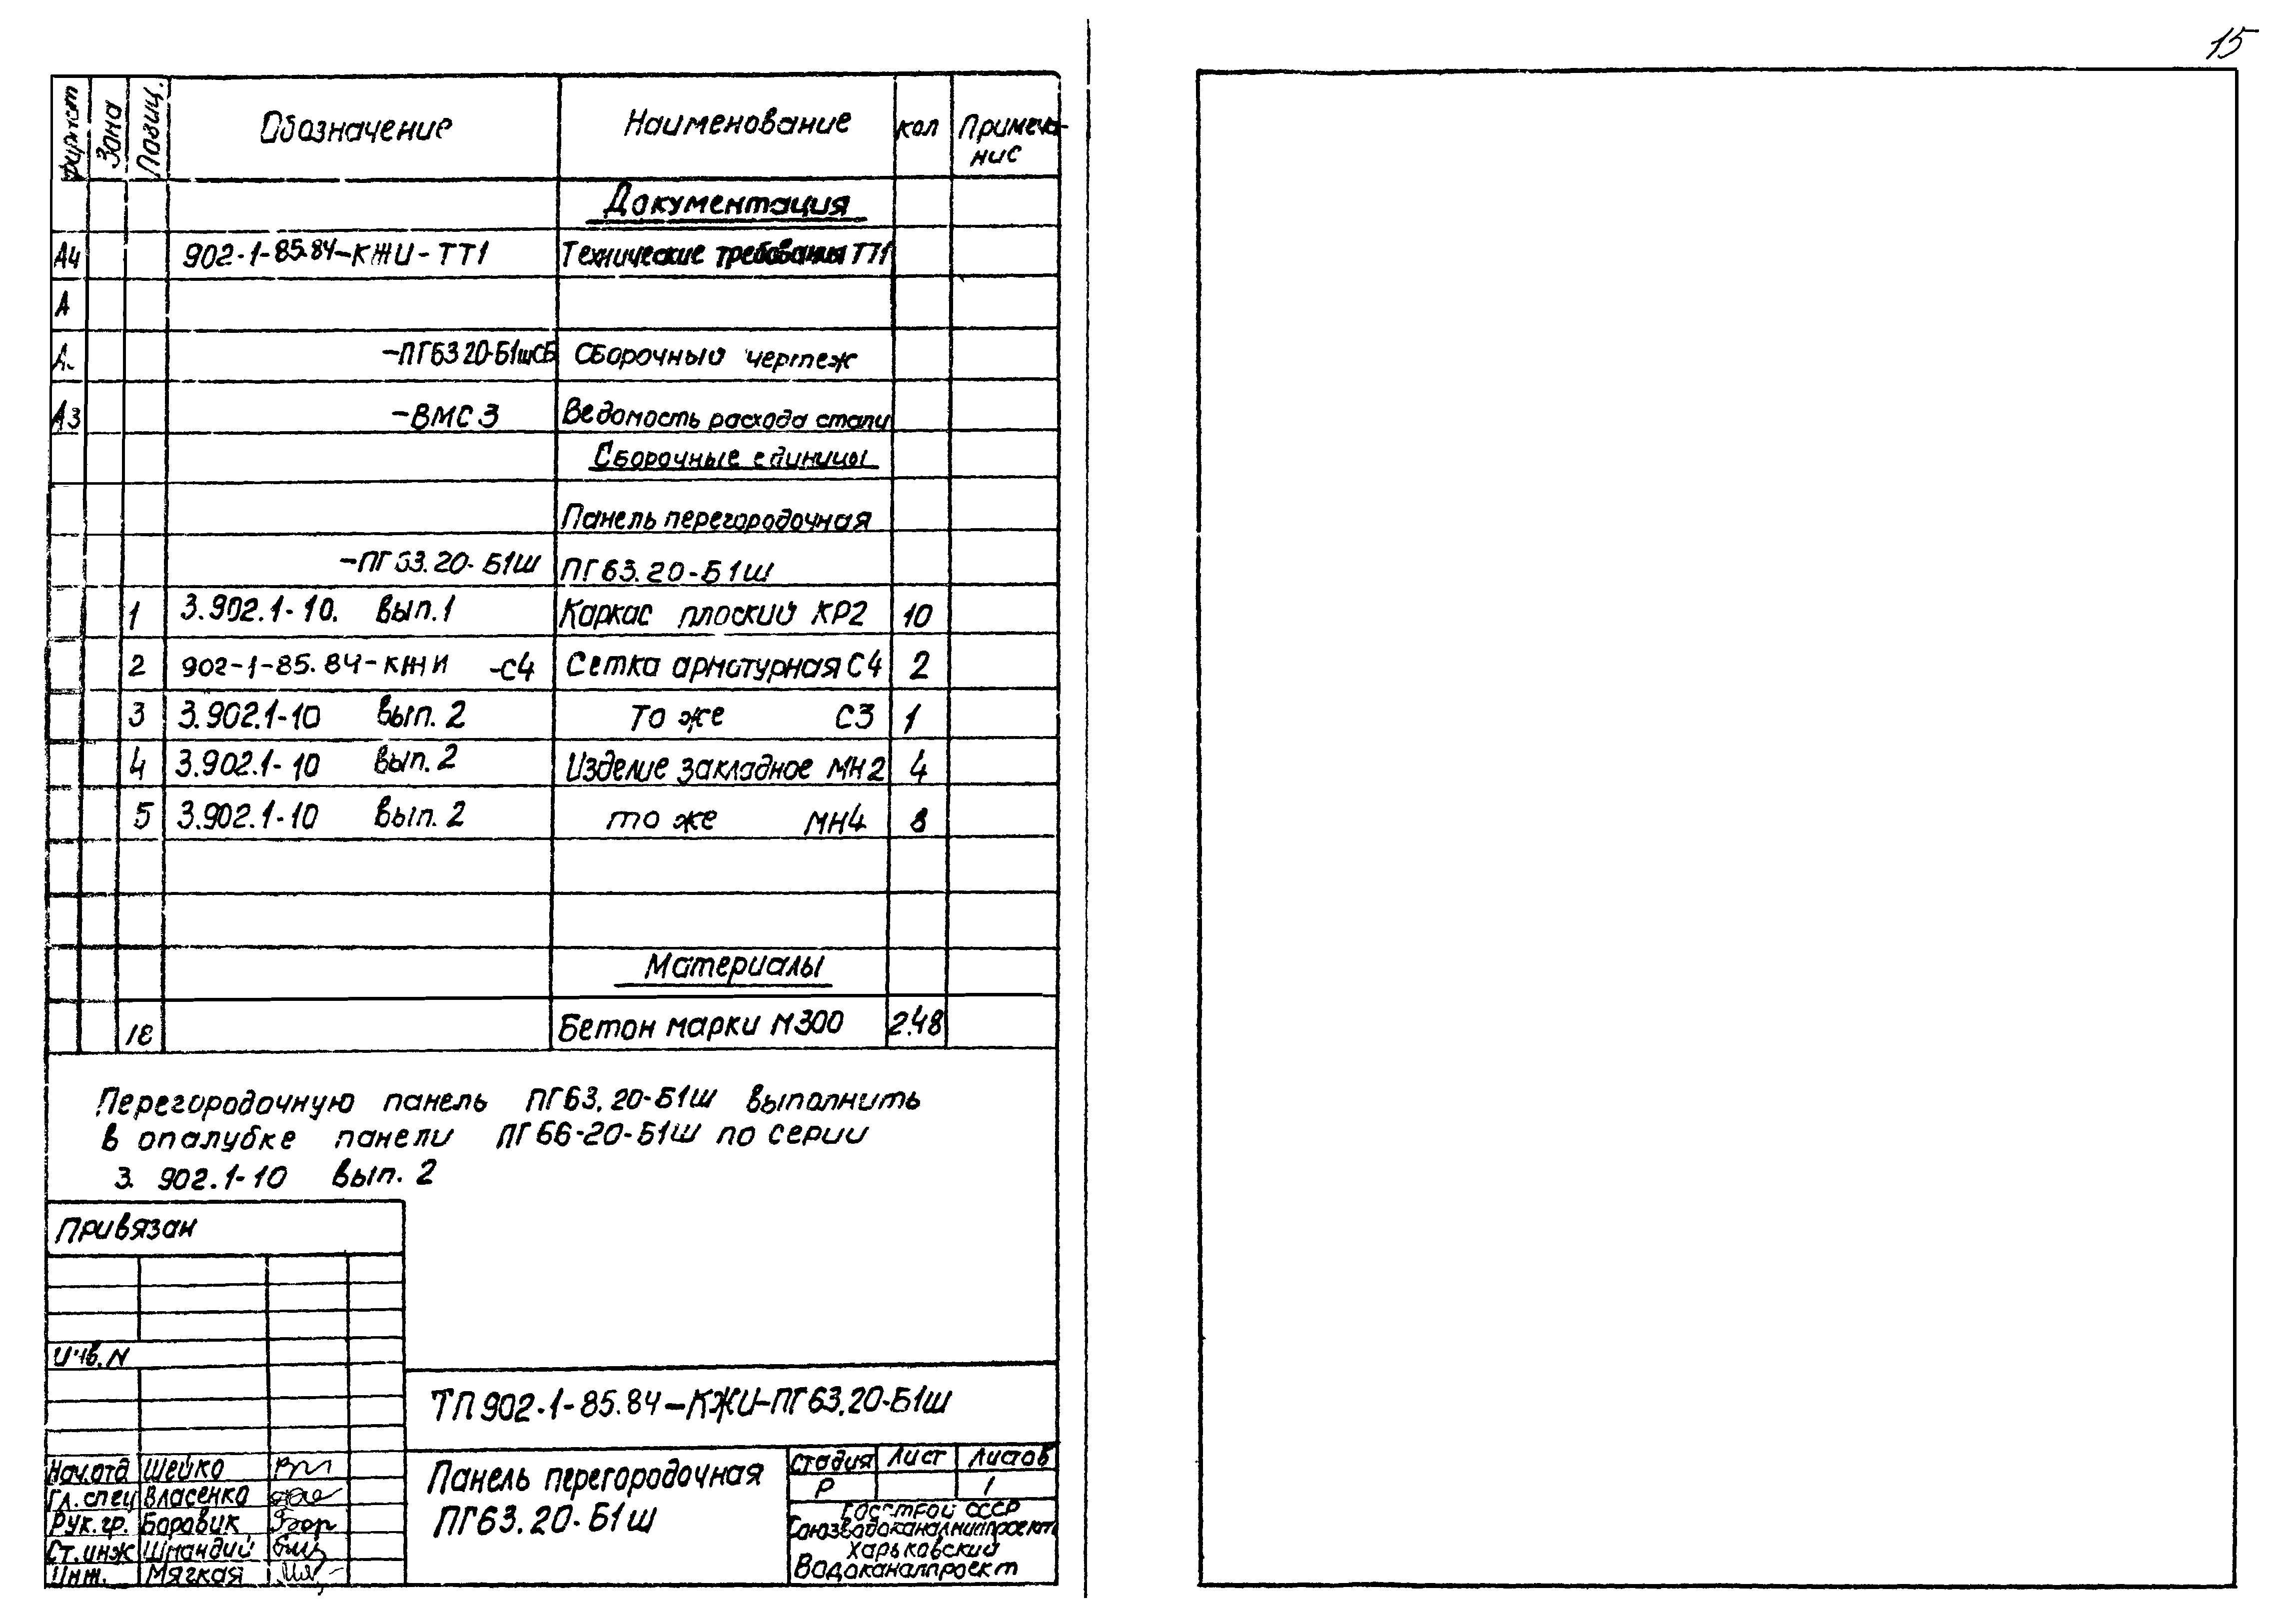 15
Формат Зона Позиц. Обозначение Наименование кол Примеча-
ние
Документация
А4 902-1-85.84-КЖИ-ТТ1 Технические требования ТТ1
А
А. -ПГ63 20-Б1шСБ Сборочный чертеж
А3 -ВМС 3 Ведомость расхода стали
Сборочные единицы
Панель перегородочная
-ПГ63.20-Б1Ш ПГ63.20-Б1Ш
1 3.902.1-10. вып.1 Каркас плоский КР2 10
2 902-1-85.84-КЖИ -С4 Сетка арматурная С4 2
3 3.902.1-10 вып. 2 То же С3 1
4 3.902.1-10 вып. 2 Изделие закладное МН2 4
5 3.902.1-10 вып. 2 то же МН4 8
Материалы
18 Бетон марки М300 2.48
Перегородочную панель ПГ63.20-Б1Ш выполнить
в опалубке панели ПГ66-20-Б1Ш по серии
3. 902.1-10 вып. 2
Привязан
Инв. N
ТП 902-1-85.84-КЖИ-ПГ63.20-Б1Ш
Панель перегородочная
ПГ63.20-Б1ш
Стадия Лист Листов
Р 1
Госстрой СССР
Союзводоканалниипроект
Харьковский
Водоканалпроект
Нач.отд Шейко
Гл. спец Власенко
Рук. гр. Боровик
Ст.инж Шмандий
Инж. Мягкая